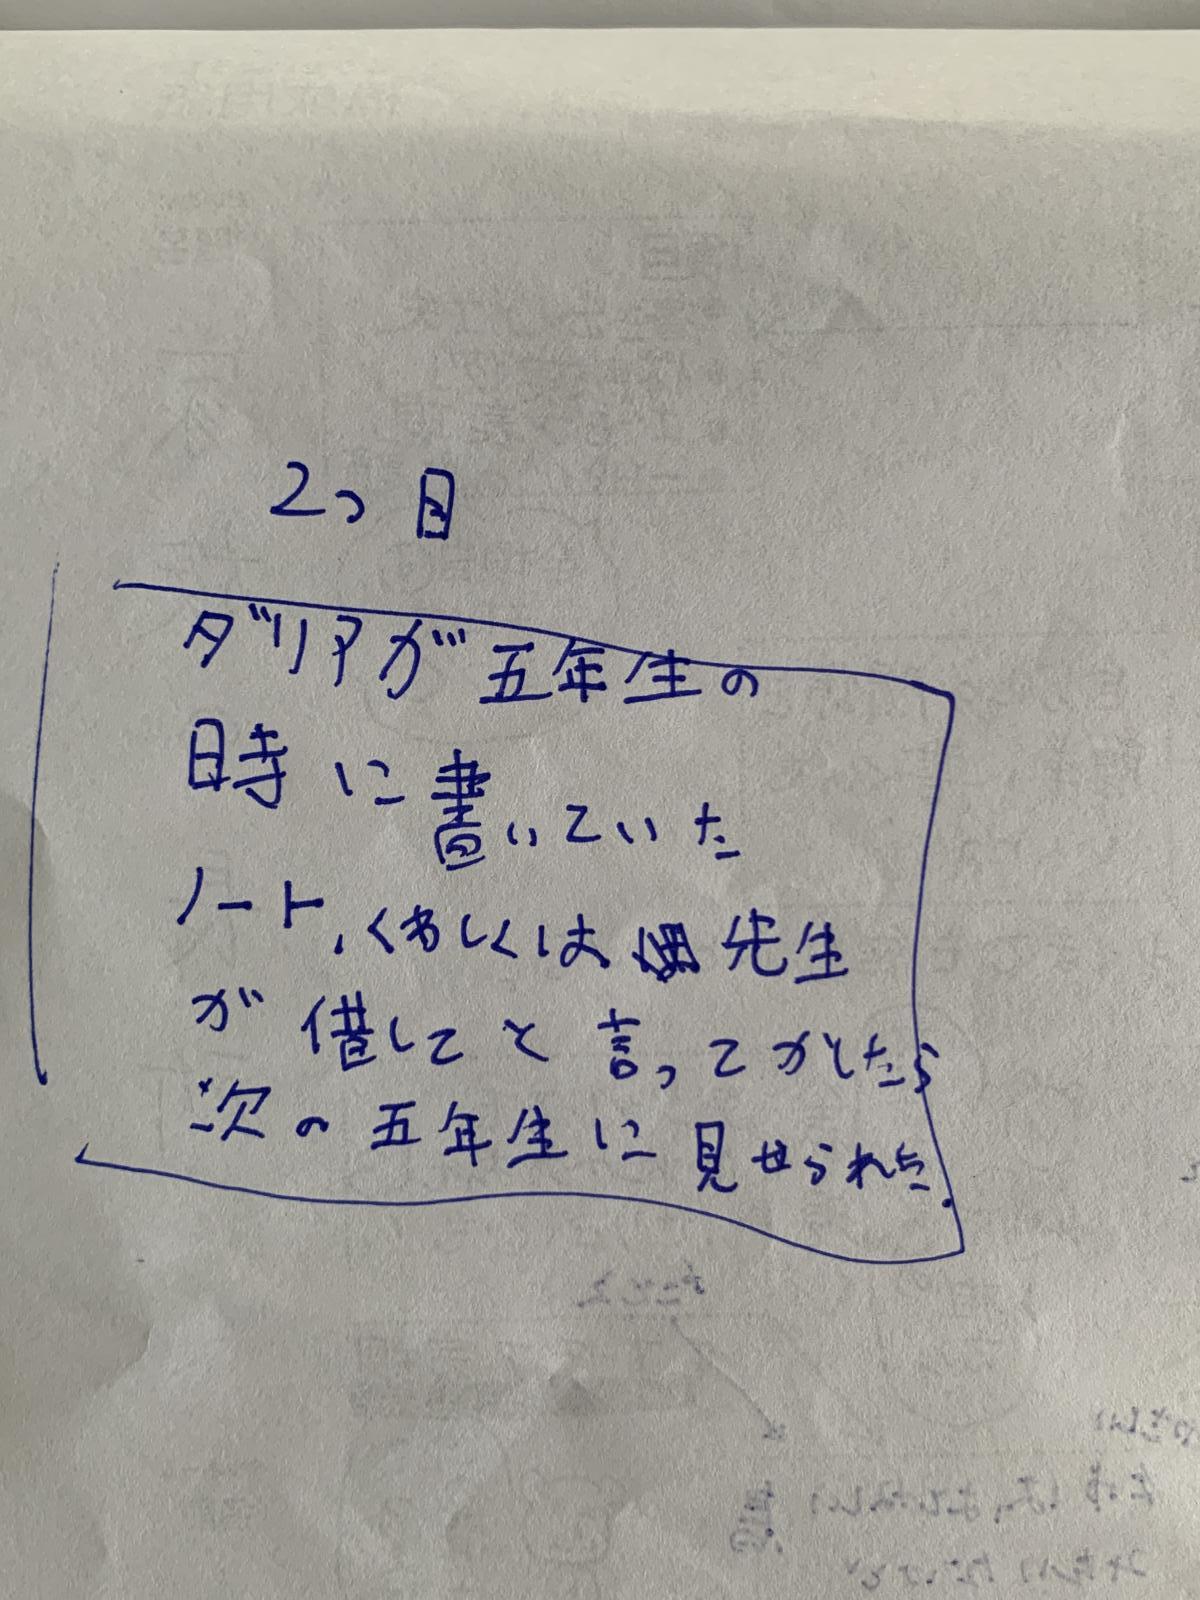 2つ目
ダリアが五年生の
時に書いていた
ノート、くわしくは畑先生
が借してと言ってかしたら
次の五年生に見せられた。